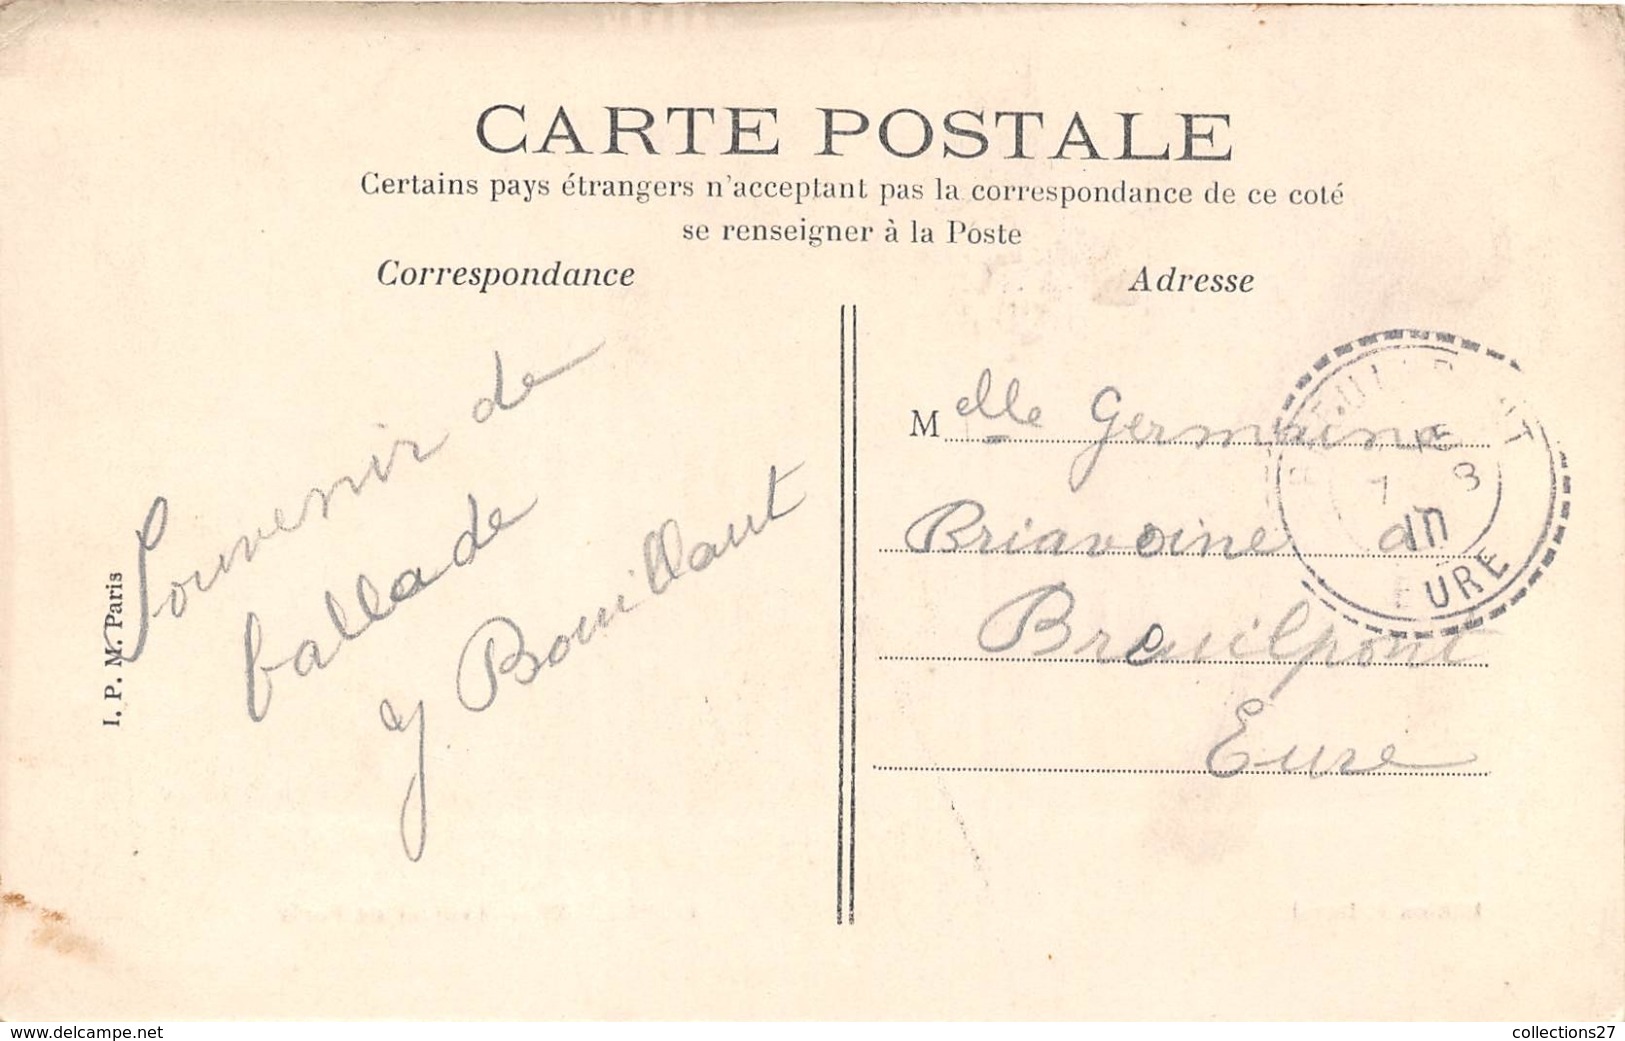 CARTE POSTALE
Certains pays étrangers n'acceptant pas la correspondance de ce coté
se renseigner à la Poste
Correspondance
Adresse
Souvenir de
ballade
Bouillant
I. P. M. Paris
Melle Germaine
Briavoine
Breuilpont
Eure
EURE
www.delcampe.net
collections27